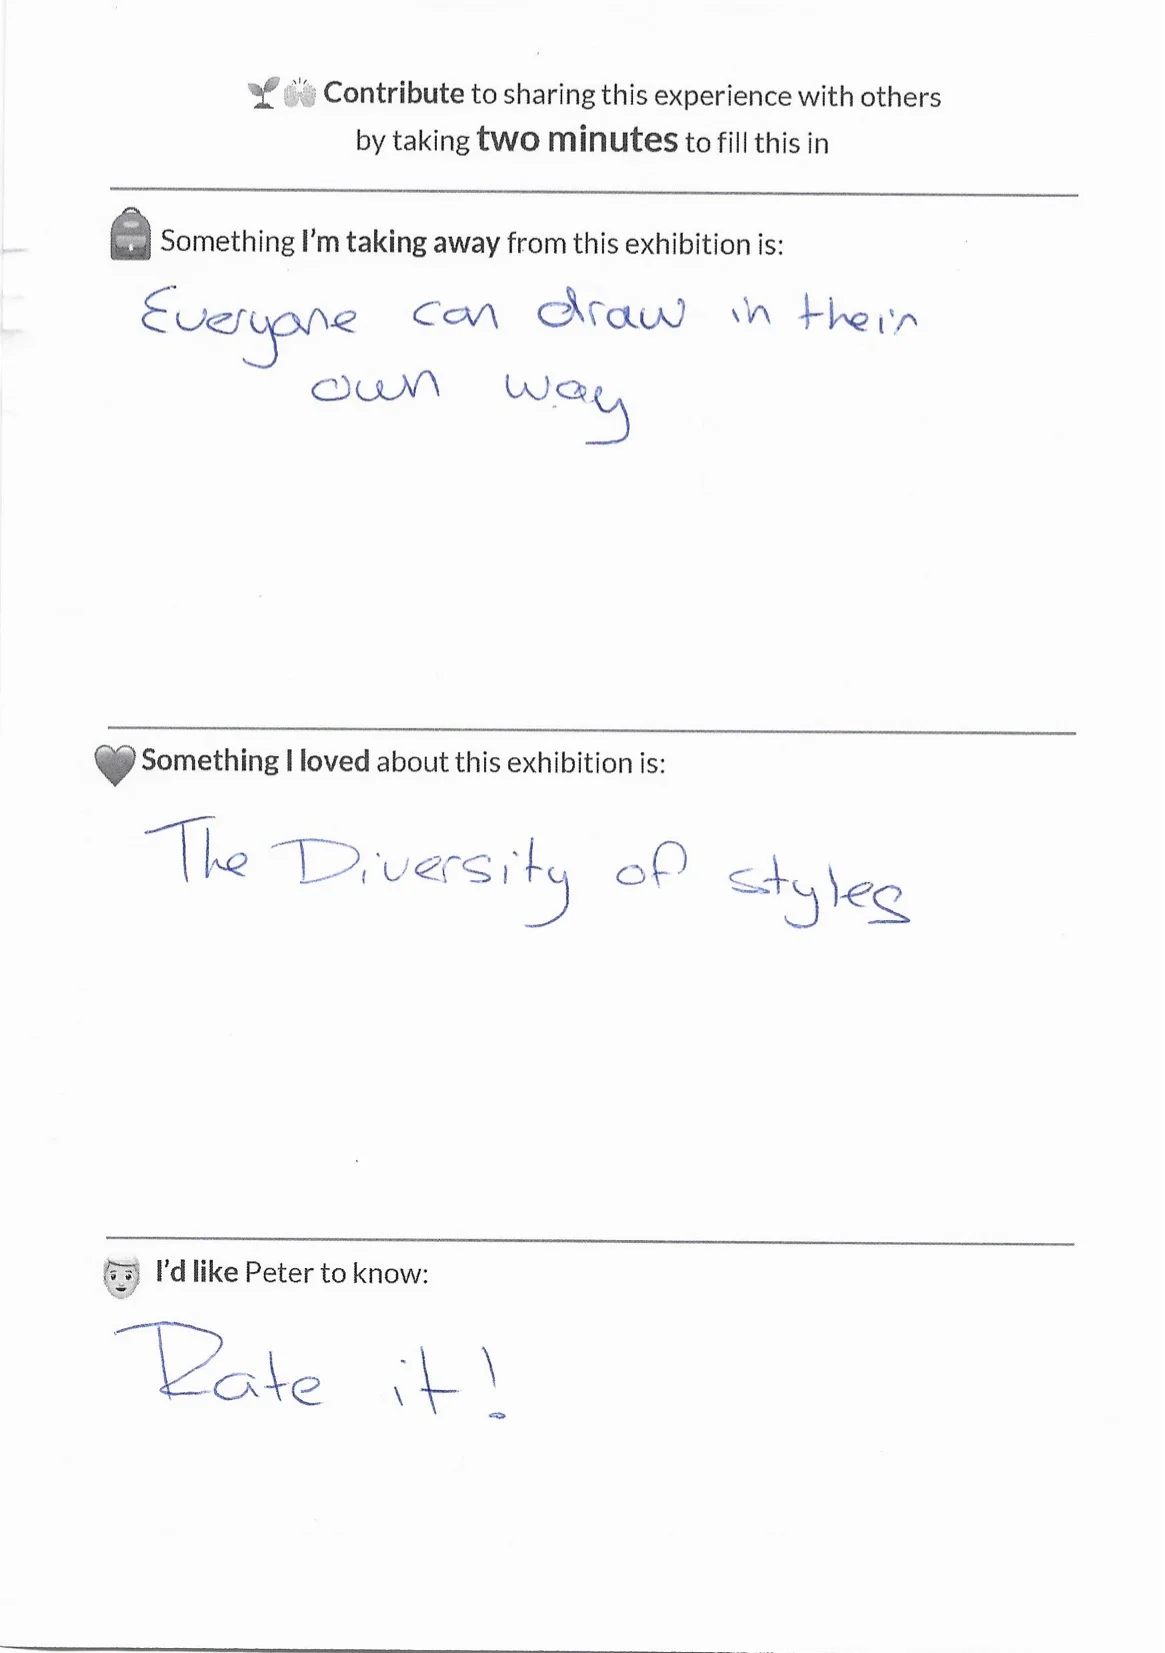 Contribute to sharing this experience with others
by taking two minutes to fill this in
Something I'm taking away from this exhibition is:
Everyone can draw in their
own way
Something I loved about this exhibition is:
The Diversity of styles
I'd like Peter to know:
Rate it!